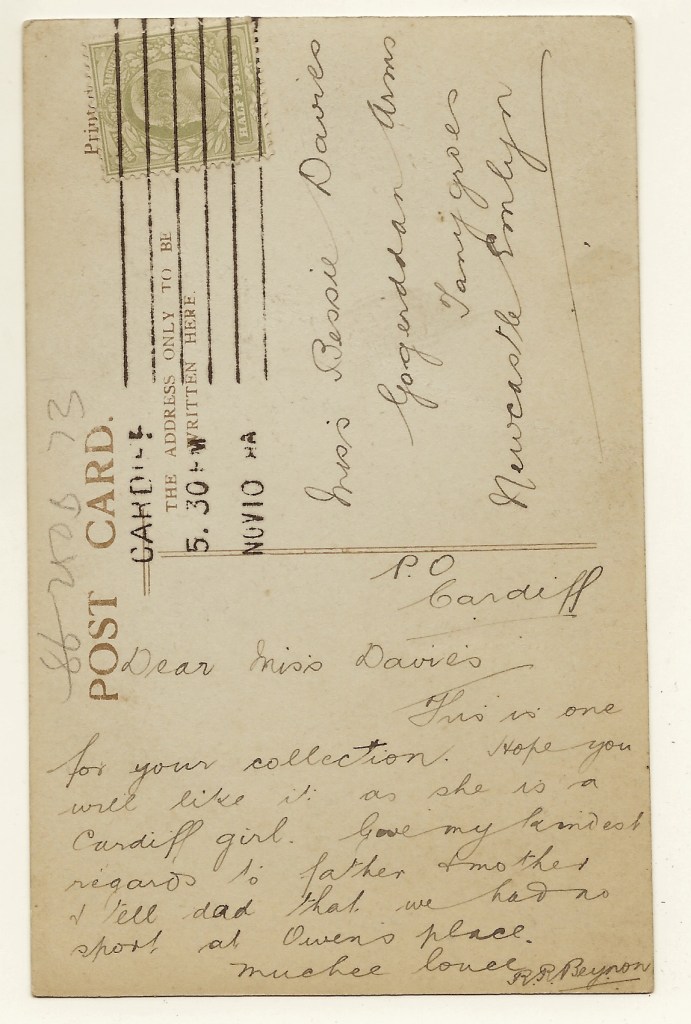 POST CARD.
THE ADDRESS ONLY TO BE
WRITTEN HERE.
Printed
HALF PENNY
CARDIFF
5.30 PM
NOV 10
Miss Bessie Davies
Gogerddan Arms
Tanygroes
Newcastle Emlyn
P.O
Cardiff
Dear Miss Davies
This is one
for your collection. Hope you
will like it as she is a
Cardiff girl. Give my kindest
regards to father & mother
& tell dad that we had no
sport at Owens place.
Muchee lovee
R.R. Beynon